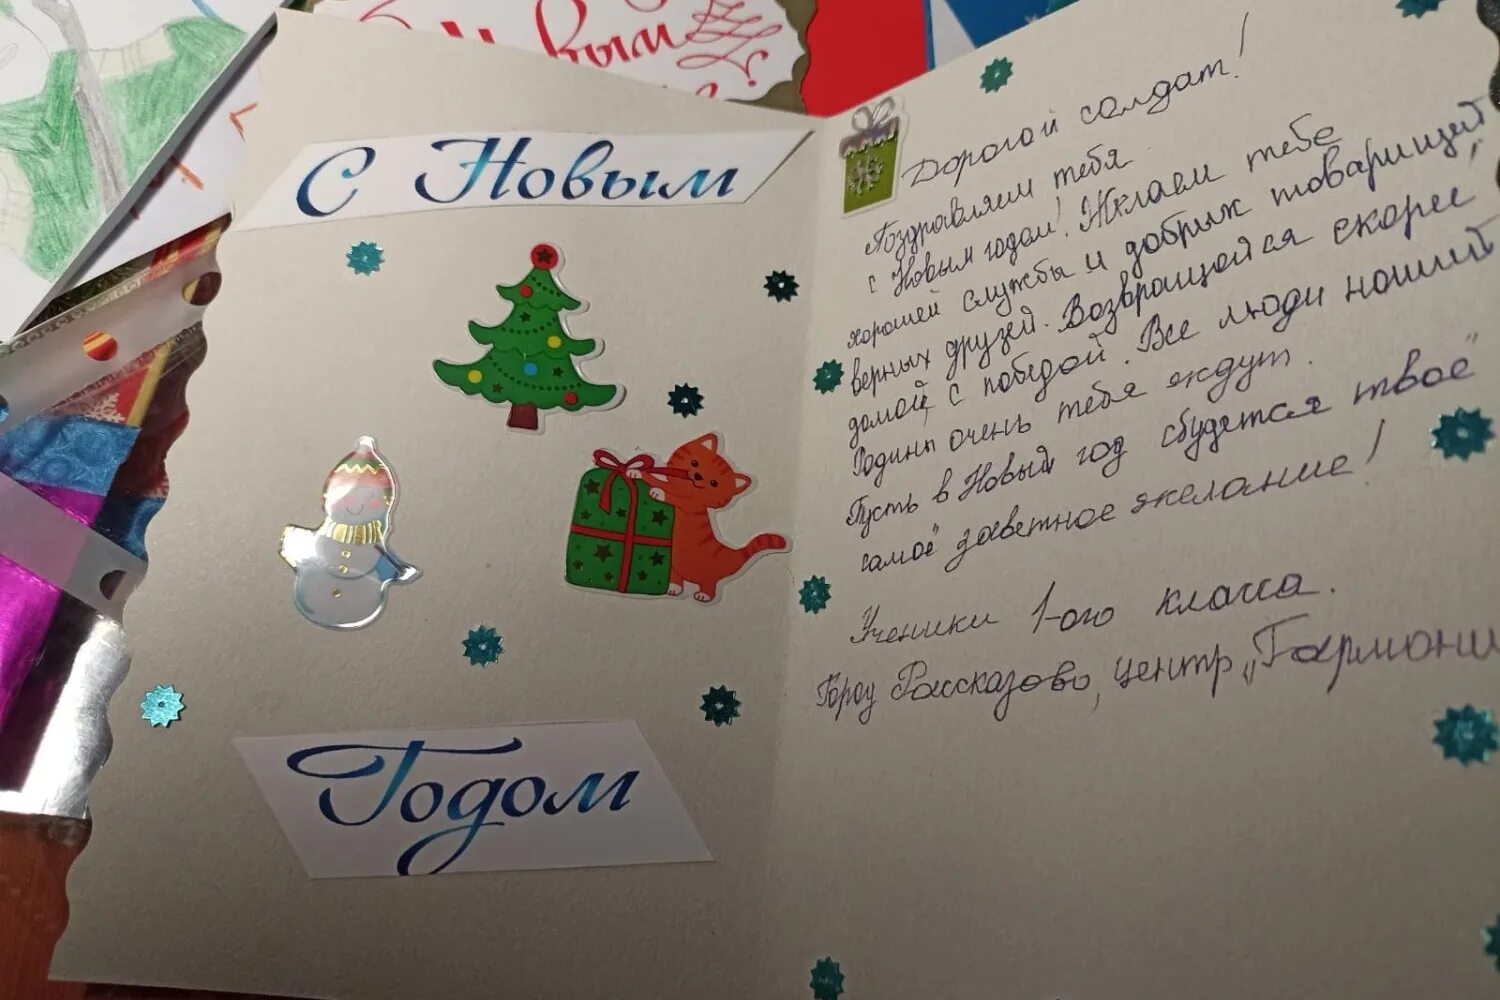 Новым
С Новым
Годом
Дорогой солдат!
Поздравляем тебя
с Новым годом! Желаем тебе
хорошей службы и добрых товарищей,
верных друзей. Возвращайся скорее
домой, с победой. Все люди нашей
Родины очень тебя ждут.
Пусть в Новый год сбудется твоё
самоё заветное желание!
Ученики 1-ого класса.
Город Рассказово, центр „Гармони